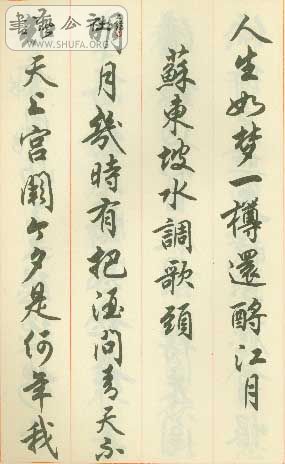 書藝公社
WWW.SHUFA.ORG
人生如梦一樽還酹江月
蘇東坡水調歌頭
明月幾時有把酒問青天不
知天上宮闕今夕是何年我